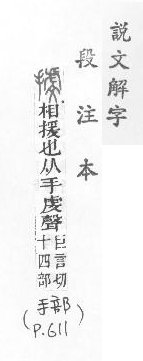 說文解字
段注本
相援也从手虔聲
巨言切
十四部
(手部
P.611)